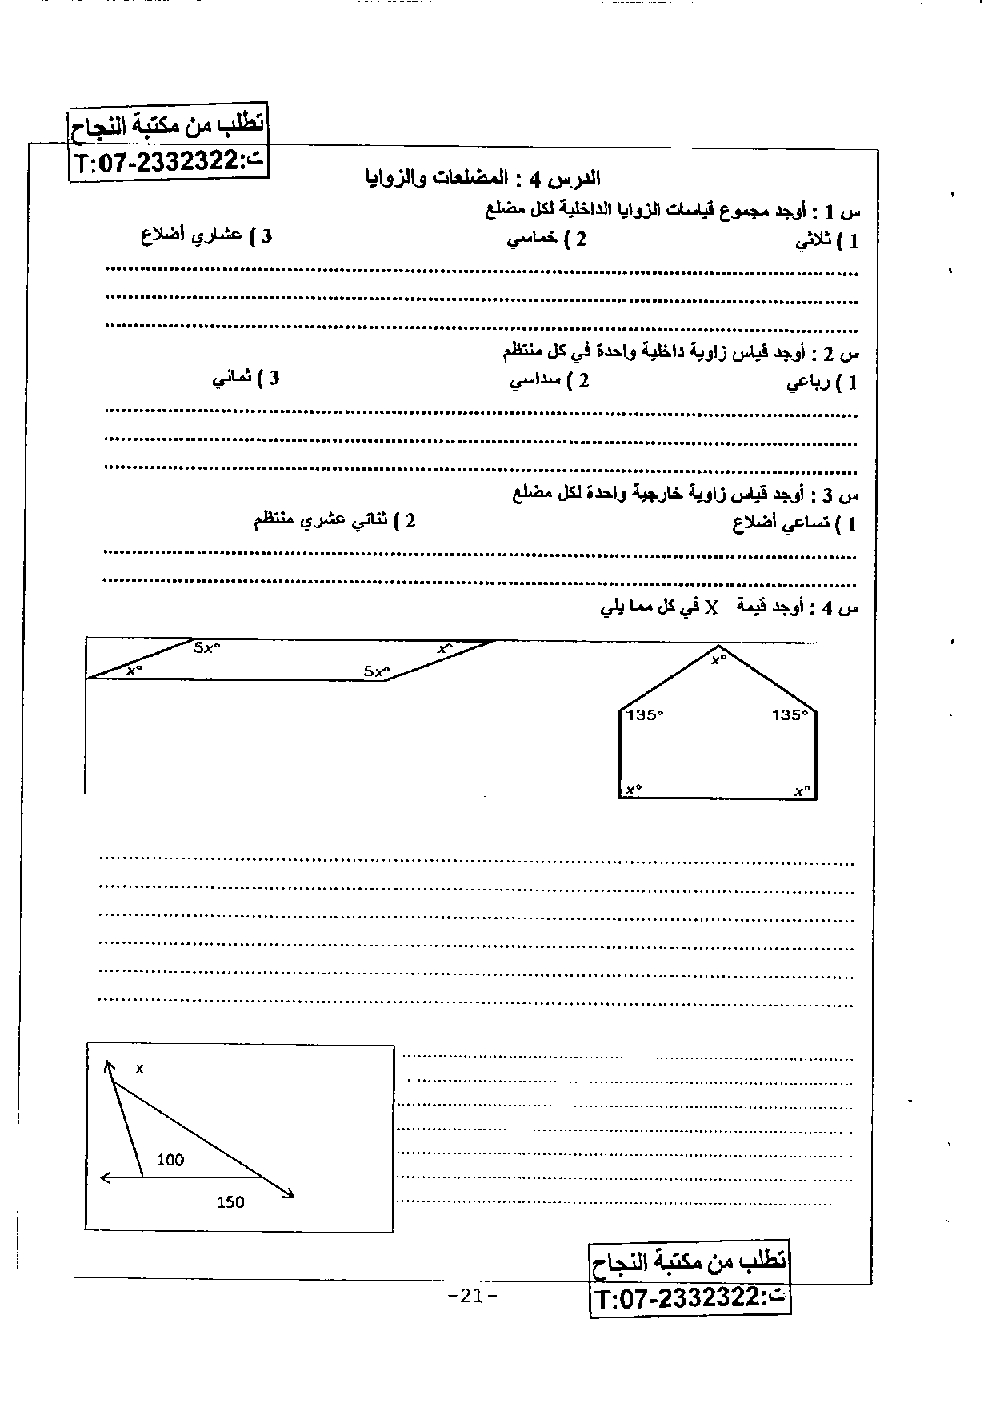 تطلب من مكتبة النجاح
ت:07-2332322:T
الدرس 4 : المضلعات والزوايا
س 1 : أوجد مجموع قياسات الزوايا الداخلية لكل مضلع
1 ) ثلاثي 2 ) خماسي 3 ) عشاري أضلاع
س 2 : أوجد قياس زاوية داخلية واحدة في كل منتظم
1 ) رباعي 2 ) سداسي 3 ) ثماني
س 3 : أوجد قياس زاوية خارجية واحدة لكل مضلع
1 ) تساعي أضلاع 2 ) ثنائي عشري منتظم
س 4 : أوجد قيمة X في كل مما يلي
5x° x°
x° 5x°
x°
135° 135°
x° x°
x
100
150
تطلب من مكتبة النجاح
ت:07-2332322:T
-21-